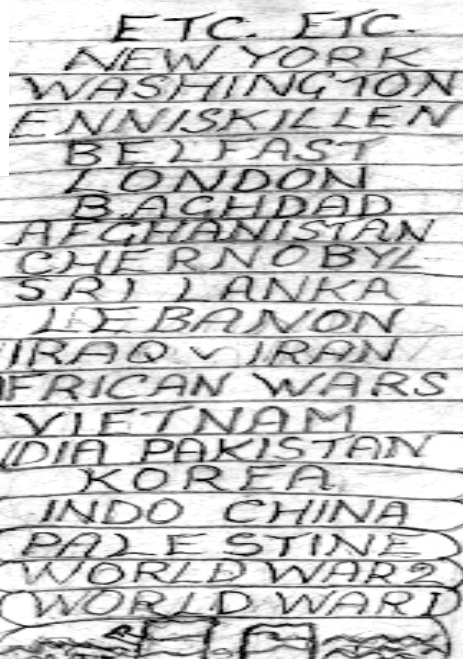 ETC. ETC.
NEW YORK
WASHINGTON
ENNISKILLEN
BELFAST
LONDON
BAGHDAD
AFGHANISTAN
CHERNOBYL
SRI LANKA
LEBANON
IRAQ v IRAN
FRICAN WARS
VIETNAM
DIA PAKISTAN
KOREA
INDO CHINA
PALESTINE
WORLD WAR 2
WORLD WAR I